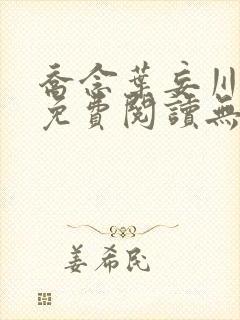 喬念葉妄川
免費閱讀無
姜希民